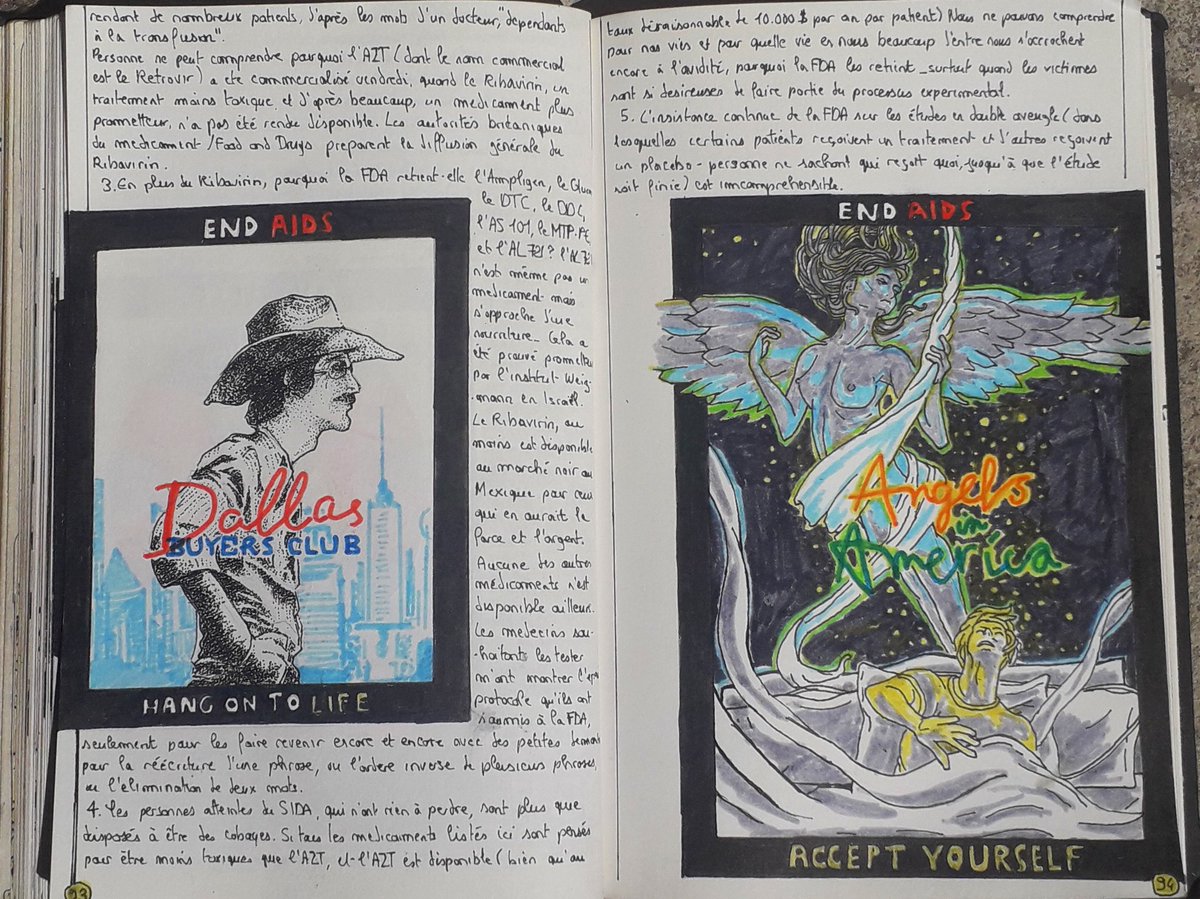 rendant de nombreux patients, d'après les mob d'un docteur, "dependants
à la transfusion".
Personne ne peut comprendre pourquoi l'AZT (dont le nom commercial
est le Retrovir) a été commercialisé vendredi, quand le Ribavirin, un
traitement moins toxique, et d'après beaucoup, un medicament plus
prometteur, n'a pas été rendu disponible. Les autorités britaniques
du medicament /Food and Drugs preparent la diffusion générale du
Ribavirin.
3. En plus du Ribavirin, pourquoi la FDA retient-elle l'Ampligen, le
le DTC, le DDC,
l'AS 101, le MTP-PE
et l'AL 721? l'AL 721
n'est même pas un
medicament mais
s'approche d'une
nourriture_ Cela a
été prouvé prometteur
par l'institut Weiz
-mann en Israël.
Le Ribavirin, au
moins est disponible
au marché noir au
Mexique pour ceux
qui en aurait la
force et l'argent.
Aucune des autres
médicaments n'est
disponible ailleurs.
Les medecins sou-
-haitants les tester
m'ont montrer
protocole qu'ils ont
soumis à la FDA,
seulement pour les faire revenir encore et encore avec des petites
pour la réécriture d'une phrase, ou l'ordere inverse de plusieurs phrases,
ou l'élimination de deux mots.
4. Les personnes atteintes du SIDA, qui n'ont rien à perdre, sont plus que
disposés à être des cobayes. Si tous les medicaments listés ici sont pensés
pour être moins toxiques que l'AZT, et l'AZT est disponible (bien qu'au
END AIDS
Dallas
BUYERS CLUB
HANG ON TO LIFE
93
taux déraisonnable de 10.000 $ par an par patient) Nous ne pouvons comprendre
pour nos vies et pour quelle vie en nous beaucoup d'entre nous s'accrochent
encore à l'avidité, pourquoi la FDA les retient _surtout quand les victimes
sont si desireuses de faire partie du processus experimental.
5. L'insistance continue de la FDA sur les études en double aveugle (dans
lesquelles certains patients reçoivent un traitement et d'autres reçoivent
un placebo - personne ne sachant qui reçoit quoi, jusqu'à que l'étude
soit finie) est imcomprehensible.
END AIDS
Angels
in
America
ACCEPT YOURSELF
94